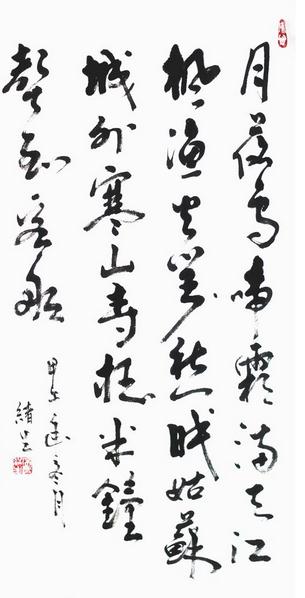 月落烏啼霜滿天江
楓漁火對愁眠姑蘇
城外寒山寺夜半鐘
聲到客船
甲午冬月
緒